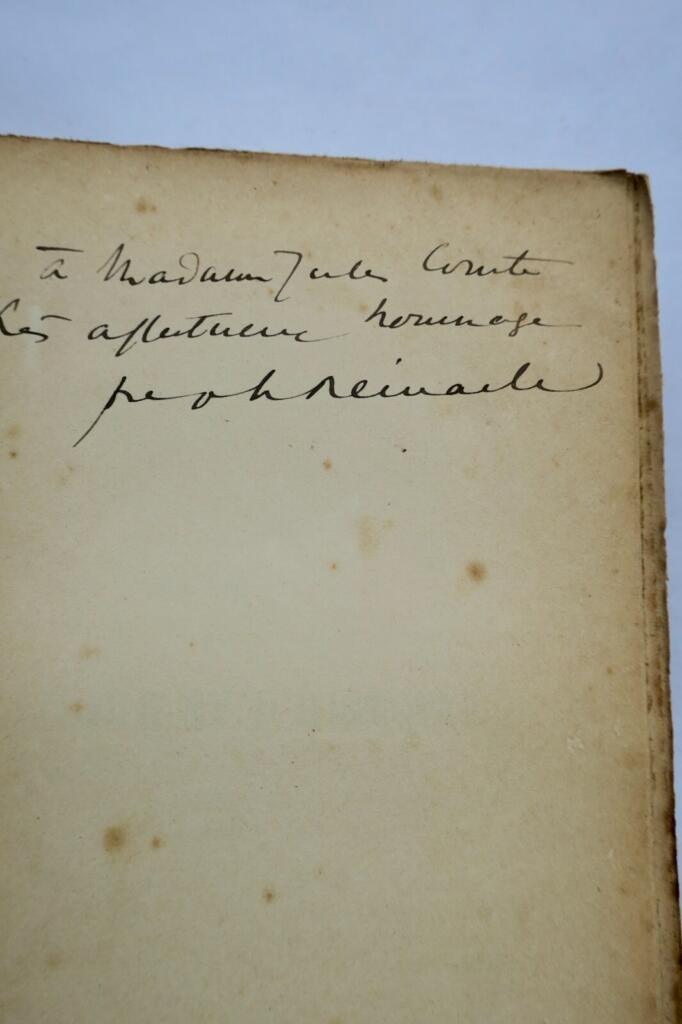 à Madame Jules Comte
très affectueux hommage
Joseph Reinach